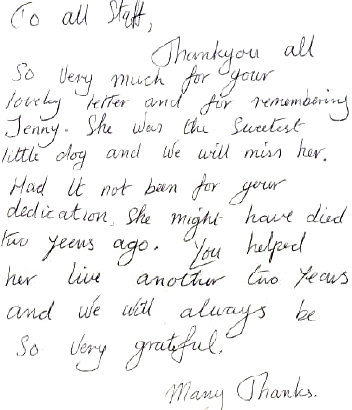 To all Staff,
Thankyou all
So very much for your
lovely letter and for remembering
Jenny. She was the Sweetest
little dog and we will miss her.
Had it not been for your
dedication, She might have died
two years ago. You helped
her live another two years
and we will always be
So very grateful.
Many Thanks.